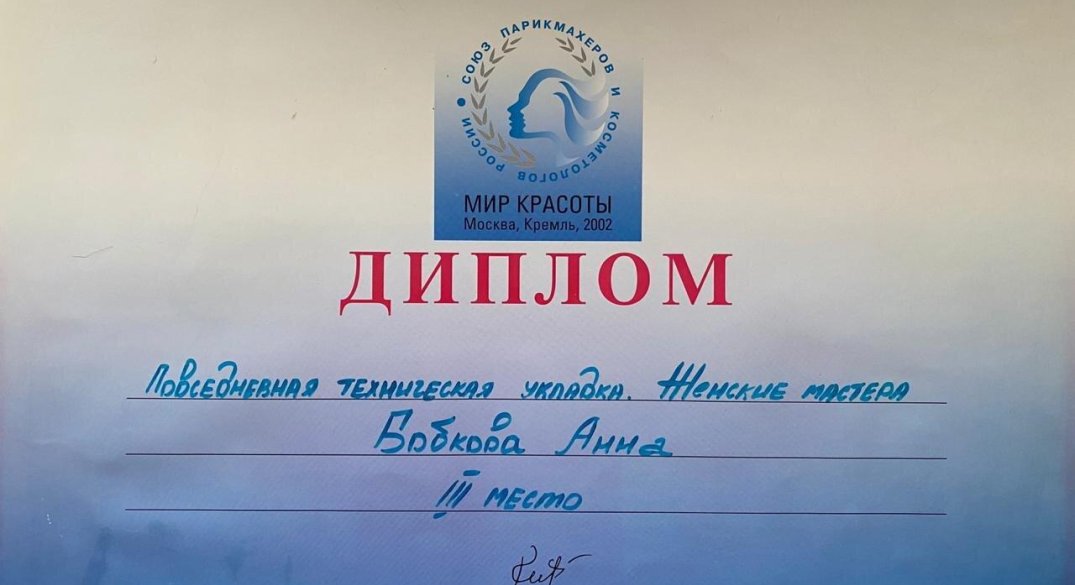 СОЮЗ ПАРИКМАХЕРОВ И КОСМЕТОЛОГОВ РОССИИ
МИР КРАСОТЫ
Москва, Кремль, 2002
ДИПЛОМ
Повседневная техническая укладка. Женские мастера
Бобкова Анна
III место